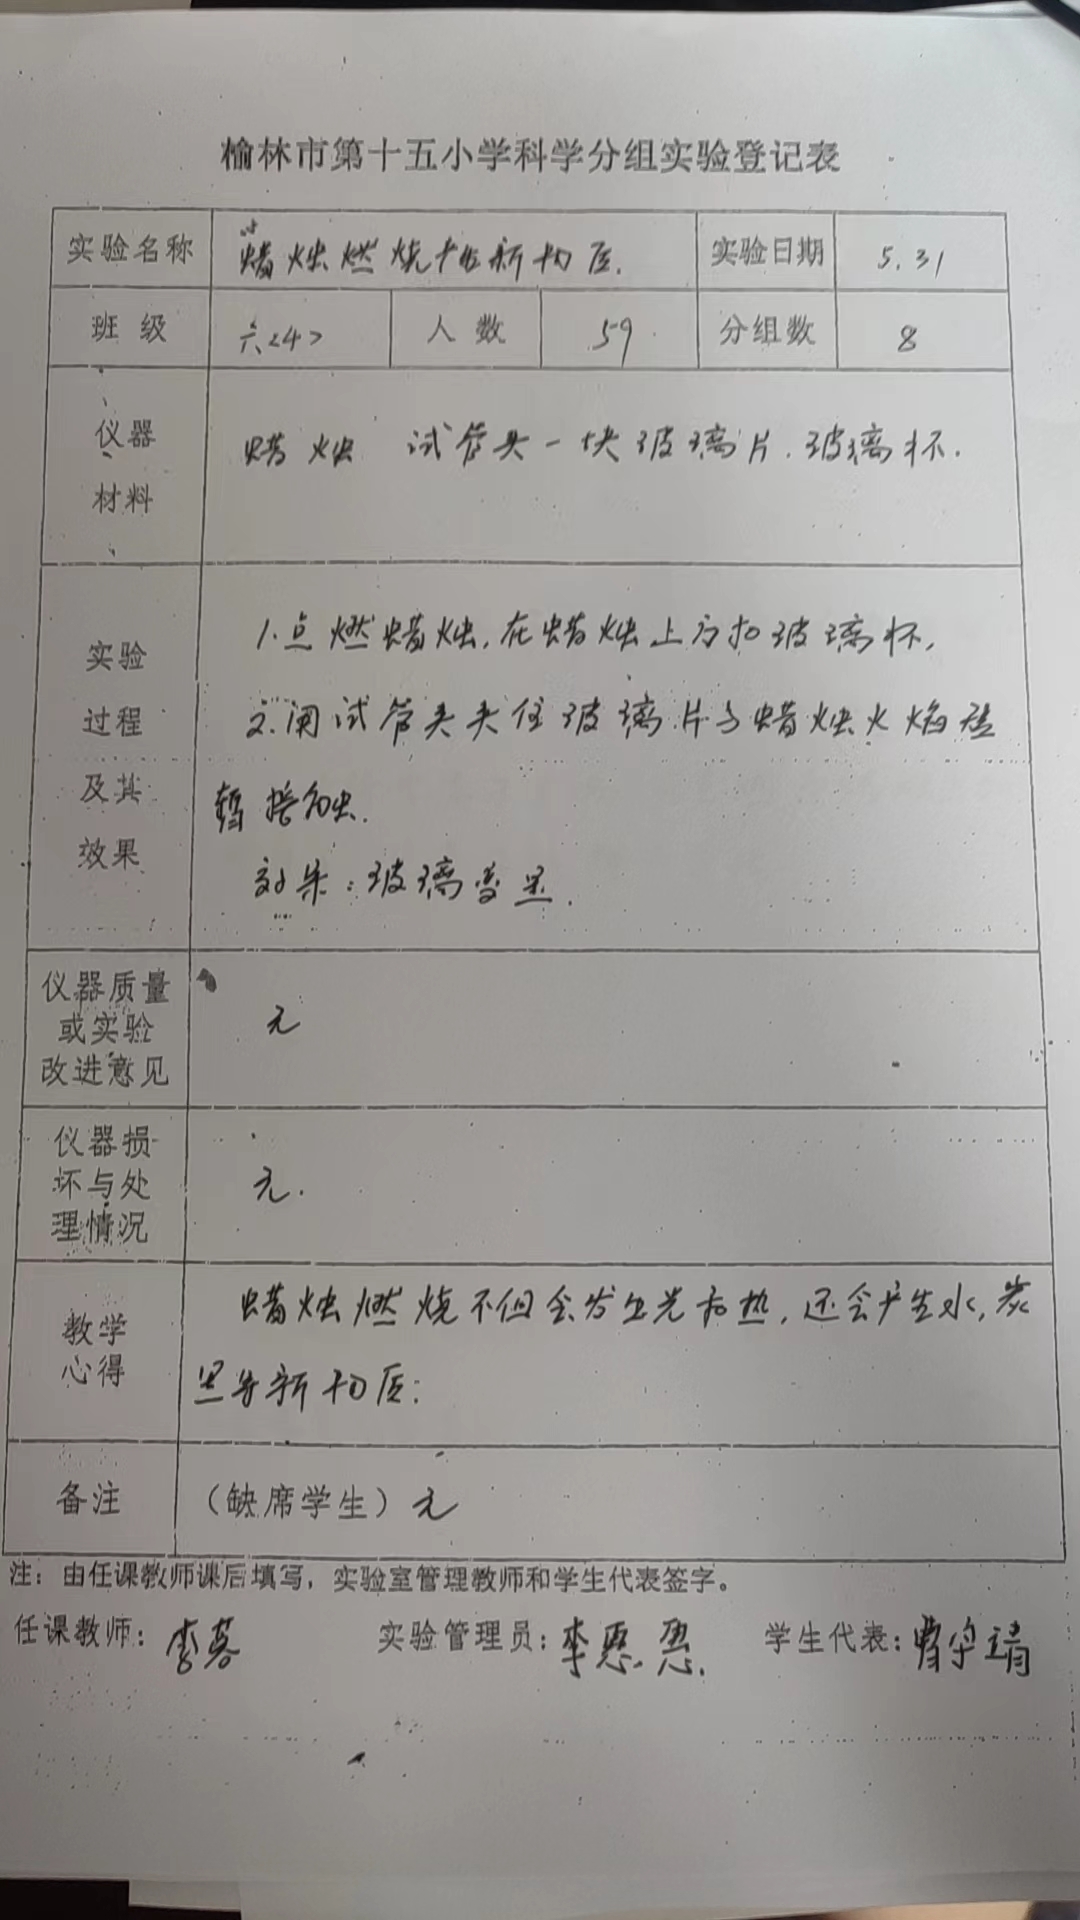 榆林市第十五小学科学分组实验登记表
实验名称 蜡烛燃烧产生新物质. 实验日期 5.31
班级 六<4> 人数 59 分组数 8
仪器
材料
蜡烛 试管夹一块玻璃片.玻璃杯.
实验
过程
及其
效果
1.点燃蜡烛,在蜡烛上方扣玻璃杯,
2.用试管夹夹住玻璃片与蜡烛火焰短
暂接触.
效果:玻璃变黑.
仪器质量
或实验
改进意见
无
仪器损
坏与处
理情况
无.
教学
心得
蜡烛燃烧不但会发生光和热,还会产生水,炭
黑等新物质.
备注 (缺席学生) 无
注:由任课教师课后填写,实验室管理教师和学生代表签字。
任课教师: 实验管理员: 学生代表: